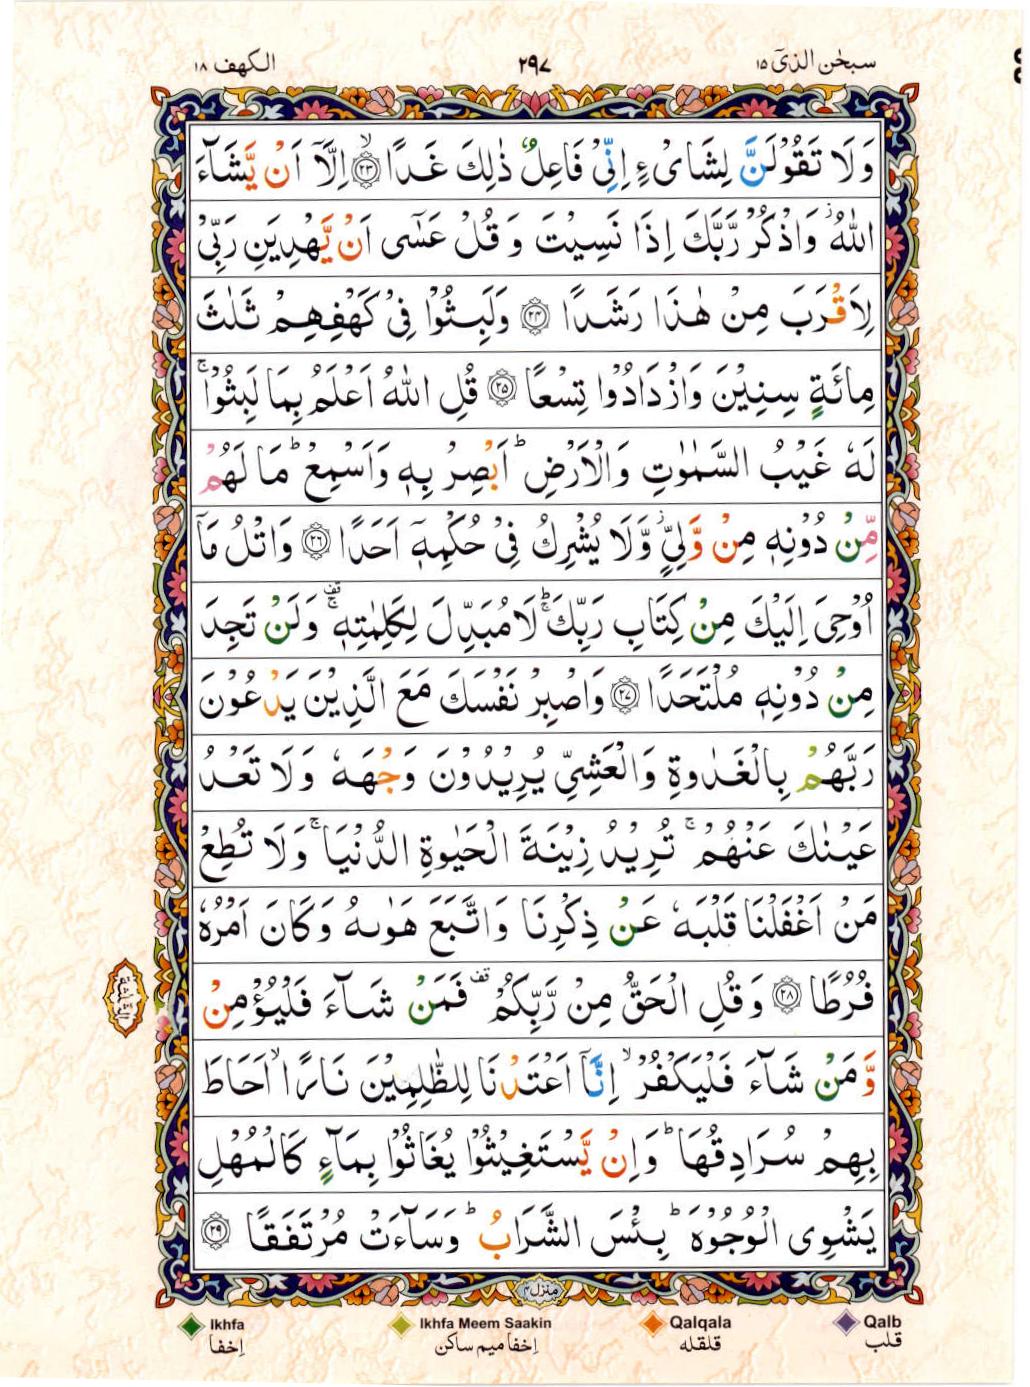 سبحٰن الذیٓ ۱۵
۲۹۷
الکھف ۱۸
وَلَا تَقُوْلَنَّ لِشَایْءٍ اِنِّیْ فَاعِلٌ ذٰلِكَ غَدًا ۙ﴿۲۳﴾ اِلَّآ اَنْ یَّشَآءَ
اللّٰهُ ۫ وَاذْكُرْ رَّبَّكَ اِذَا نَسِیْتَ وَ قُلْ عَسٰٓی اَنْ یَّهْدِیَنِ رَبِّیْ
لِاَقْرَبَ مِنْ هٰذَا رَشَدًا ﴿۲۴﴾ وَلَبِثُوْا فِیْ كَهْفِهِمْ ثَلٰثَ
مِائَةٍ سِنِیْنَ وَازْدَادُوْا تِسْعًا ﴿۲۵﴾ قُلِ اللّٰهُ اَعْلَمُ بِمَا لَبِثُوْا ۚ
لَهٗ غَیْبُ السَّمٰوٰتِ وَالْاَرْضِ ؕ اَبْصِرْ بِهٖ وَاَسْمِعْ ؕ مَا لَهُمْ
مِّنْ دُوْنِهٖ مِنْ وَّلِیٍّ ۫ وَّلَا یُشْرِكُ فِیْ حُكْمِهٖٓ اَحَدًا ﴿۲۶﴾ وَاتْلُ مَآ
اُوْحِیَ اِلَیْكَ مِنْ كِتَابِ رَبِّكَ ؕۚ لَامُبَدِّلَ لِكَلِمٰتِهٖ ۚ قف وَلَنْ تَجِدَ
مِنْ دُوْنِهٖ مُلْتَحَدًا ﴿۲۷﴾ وَاصْبِرْ نَفْسَكَ مَعَ الَّذِیْنَ یَدْعُوْنَ
رَبَّهُمْ بِالْغَدٰوةِ وَالْعَشِیِّ یُرِیْدُوْنَ وَجْهَهٗ وَلَا تَعْدُ
عَیْنٰكَ عَنْهُمْ ۚ تُرِیْدُ زِیْنَةَ الْحَیٰوةِ الدُّنْیَا ۚ وَلَا تُطِعْ
مَنْ اَغْفَلْنَا قَلْبَهٗ عَنْ ذِكْرِنَا وَاتَّبَعَ هَوٰىهُ وَكَانَ اَمْرُهٗ
فُرُطًا ﴿۲۸﴾ وَقُلِ الْحَقُّ مِنْ رَّبِّكُمْ قف فَمَنْ شَآءَ فَلْیُؤْمِنْ
وَّمَنْ شَآءَ فَلْیَكْفُرْ ۙ اِنَّآ اَعْتَدْنَا لِلظّٰلِمِیْنَ نَارًا ۙ اَحَاطَ
بِهِمْ سُرَادِقُهَا ؕ وَاِنْ یَّسْتَغِیْثُوْا یُغَاثُوْا بِمَآءٍ كَالْمُهْلِ
یَشْوِی الْوُجُوْهَ ؕ بِئْسَ الشَّرَابُ ؕ وَسَآءَتْ مُرْتَفَقًا ﴿۲۹﴾
الثلٰثة
منزل ۴
Ikhfa
اِخفا
Ikhfa Meem Saakin
اِخفا میم ساکن
Qalqala
قلقله
Qalb
قلب